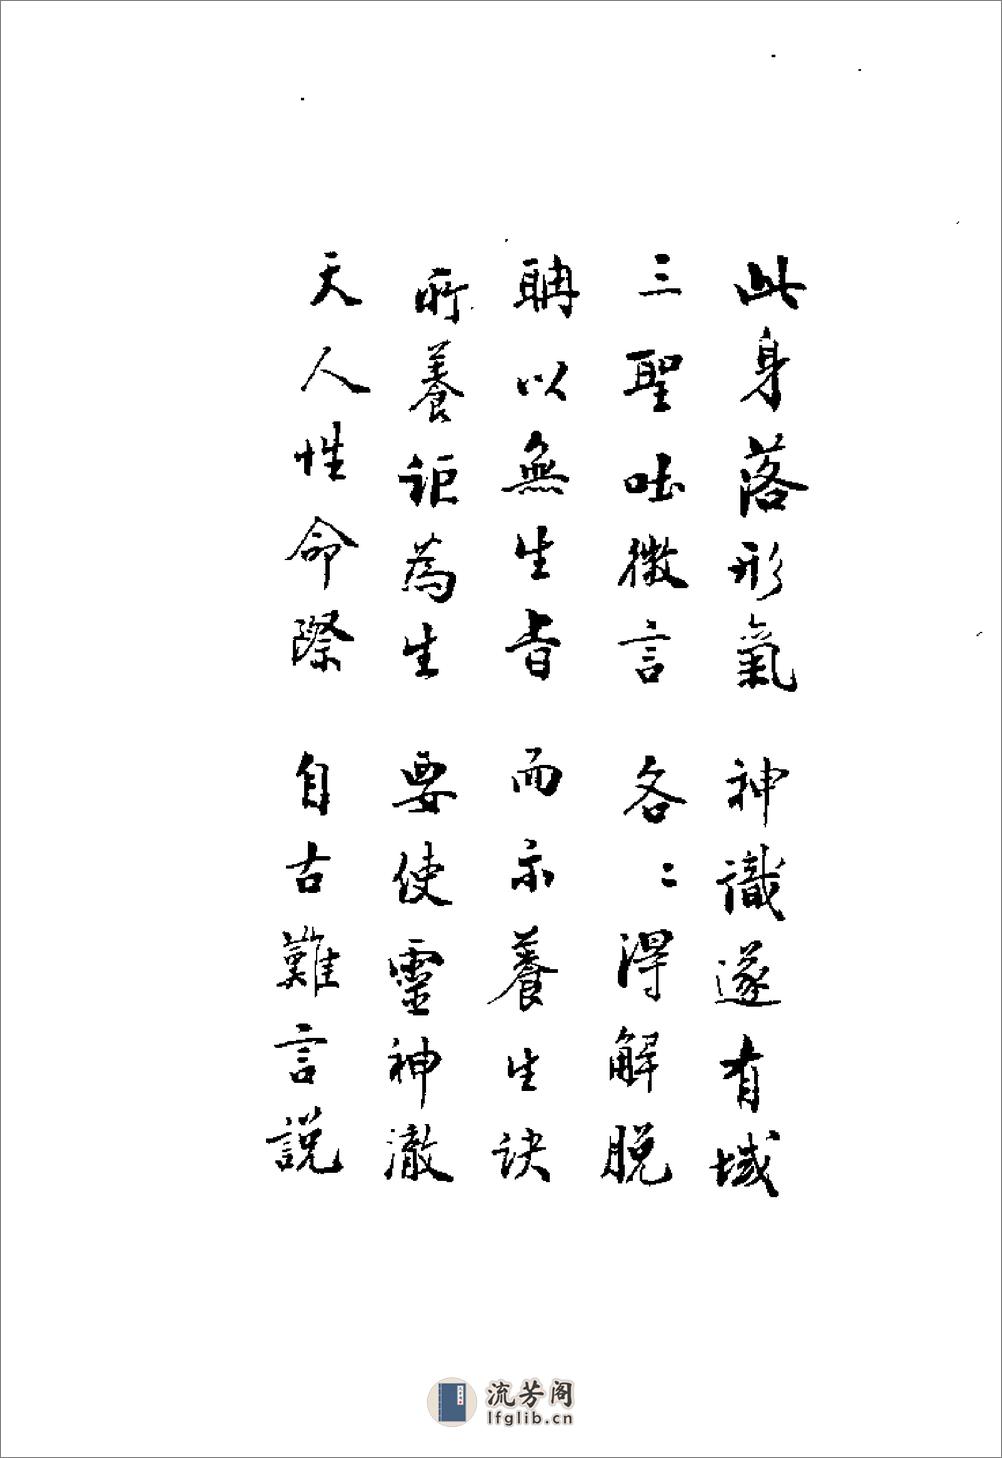 此身落形氣　神識遂有域
三聖吐微言　各〻得解脫
聃以無生旨　而示養生訣
所養詎為生　要使靈神澈
天人性命際　自古難言説
流芳阁
lfglib.cn